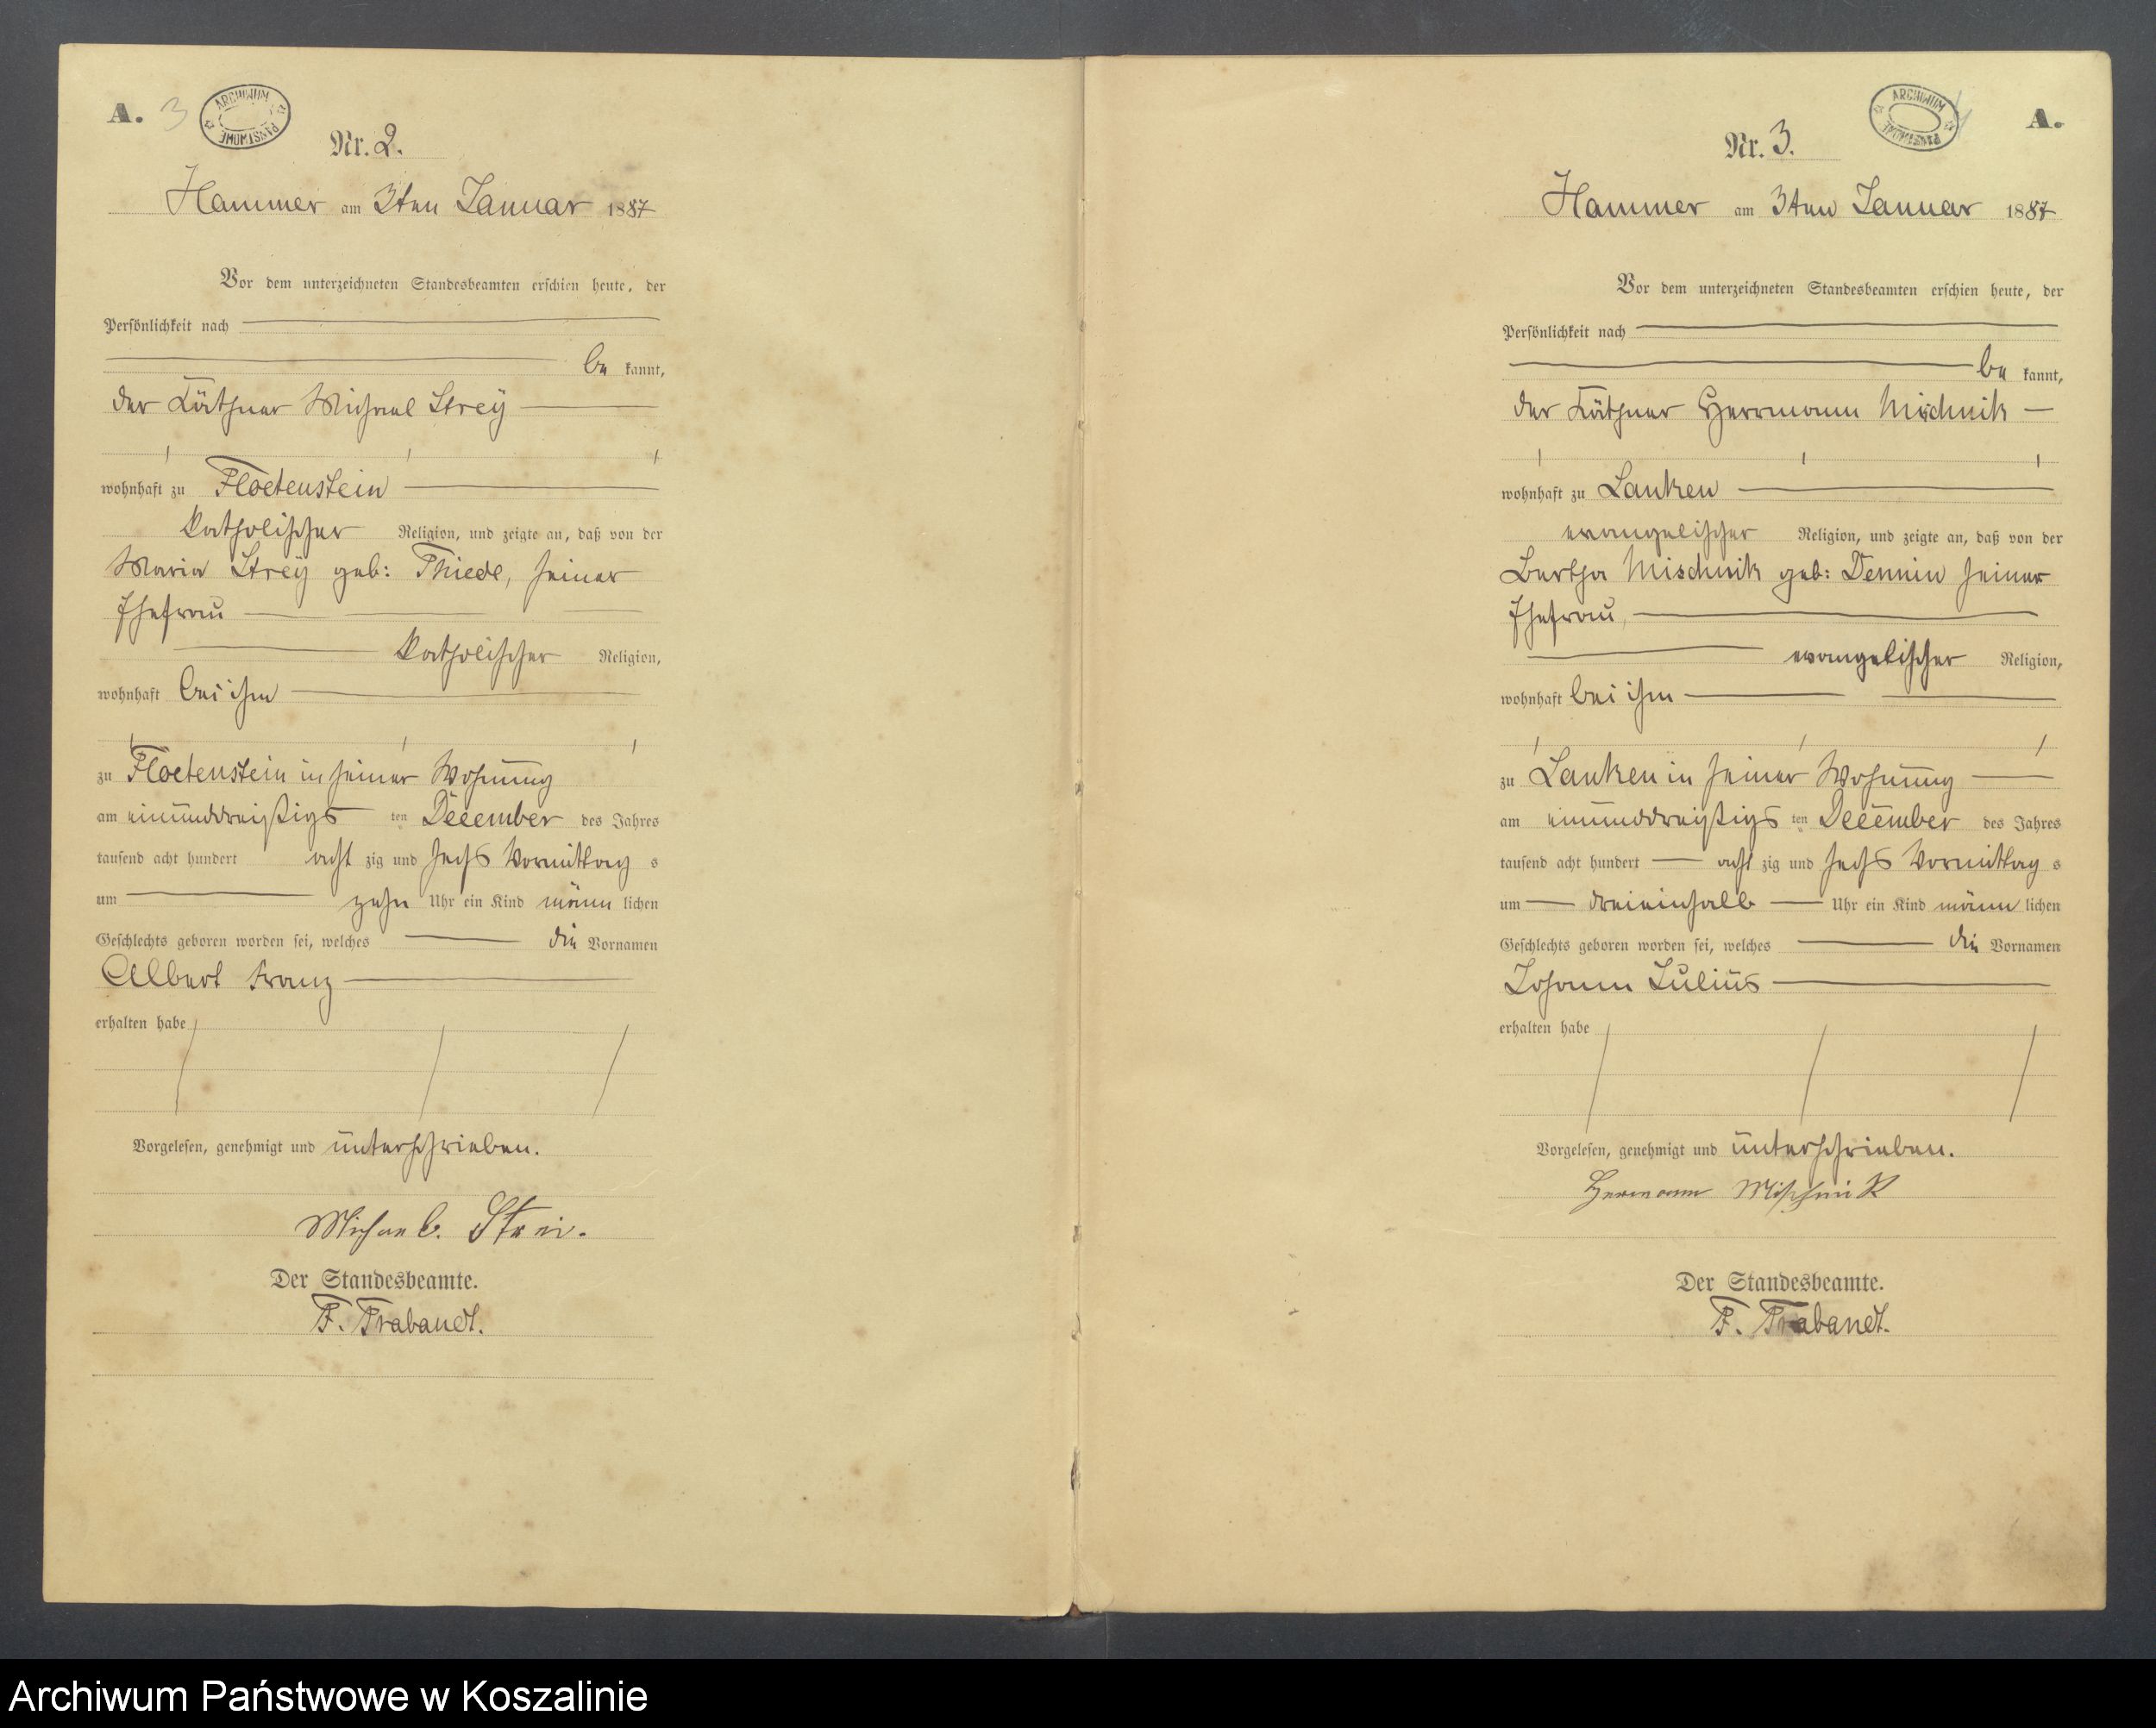 A. 3
ARCHIWUM PAŃSTWOWE
Nr. 2.
Hammer am 3ten Januar 1887
Vor dem unterzeichneten Standesbeamten erschien heute, der
Persönlichkeit nach
be kannt,
der Käthner Michael Strey
wohnhaft zu Floetenstein
katholischer Religion, und zeigte an, daß von der
Maria Strey geb: Thiede, seiner
Ehefrau
katholischer Religion,
wohnhaft bei ihm
zu Floetenstein in seiner Wohnung
am einunddreißigs ten December des Jahres
tausend acht hundert acht zig und sechs Vormittag s
um zehn Uhr ein Kind männ lichen
Geschlechts geboren worden sei, welches die Vornamen
Albert Franz
erhalten habe
Vorgelesen, genehmigt und unterschrieben.
Michael. Strei.
Der Standesbeamte.
F. Trabandt.
A.
ARCHIWUM PAŃSTWOWE
Nr. 3.
Hammer am 3ten Januar 1887
Vor dem unterzeichneten Standesbeamten erschien heute, der
Persönlichkeit nach
be kannt,
der Käthner Herrmann Mischnik
wohnhaft zu Lanken
evangelischer Religion, und zeigte an, daß von der
Bertha Mischnik geb: Demin seiner
Ehefrau,
evangelischer Religion,
wohnhaft bei ihm
zu Lanken in seiner Wohnung
am einunddreißigs ten December des Jahres
tausend acht hundert acht zig und sechs Vormittag s
um dreieinhalb Uhr ein Kind männ lichen
Geschlechts geboren worden sei, welches die Vornamen
Johann Julius
erhalten habe
Vorgelesen, genehmigt und unterschrieben.
Hermann Mischnik
Der Standesbeamte.
F. Trabandt.
Archiwum Państwowe w Koszalinie